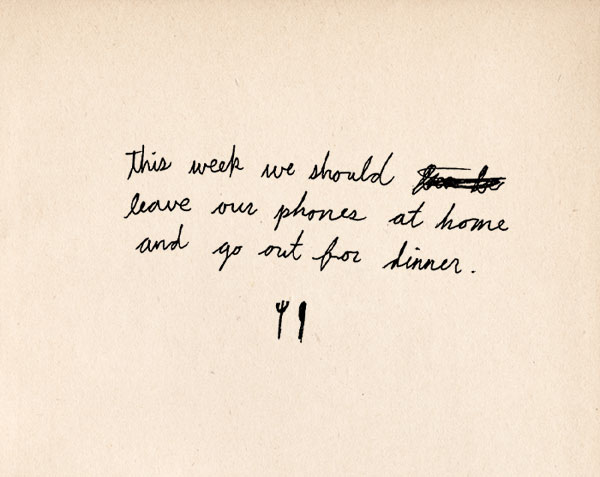 this week we should
leave our phones at home
and go out for dinner.